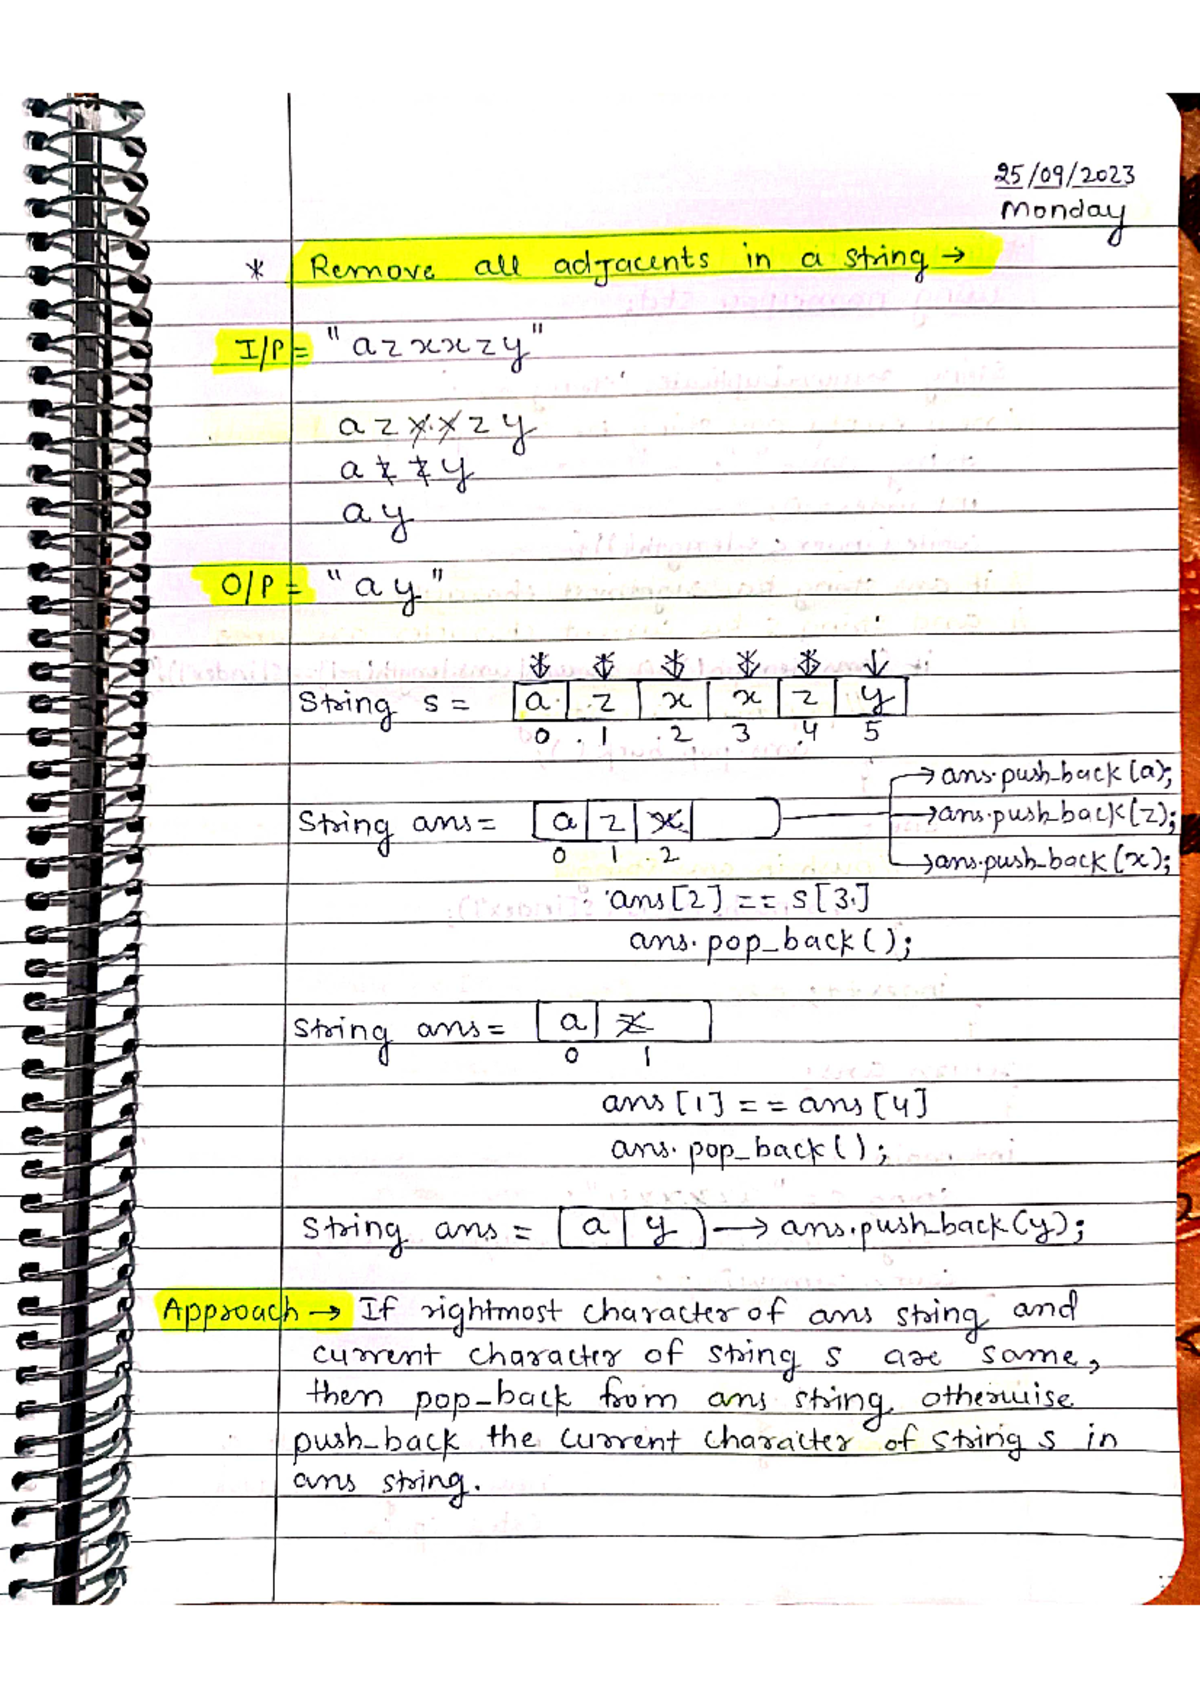 25/09/2023
Monday
* Remove all adjacents in a string →
I/P = "azxxzy"
azxxzy
azzy
ay
O/P = "ay"
String s = a z x x z y
0 1 2 3 4 5
→ ans.push_back(a);
String ans = a z x → ans.push_back(z);
0 1 2 → ans.push_back(x);
ans[2] == s[3]
ans.pop_back();
String ans = a z
0 1
ans[1] == ans[4]
ans.pop_back();
String ans = a y → ans.push_back(y);
Approach → If rightmost character of ans string and
current character of string s are same,
then pop_back from ans string, otherwise
push_back the current character of string s in
ans string.